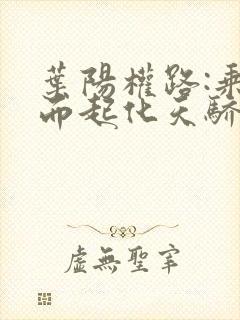 葉陽權路:乘
而起化天驕
虛無聖宰